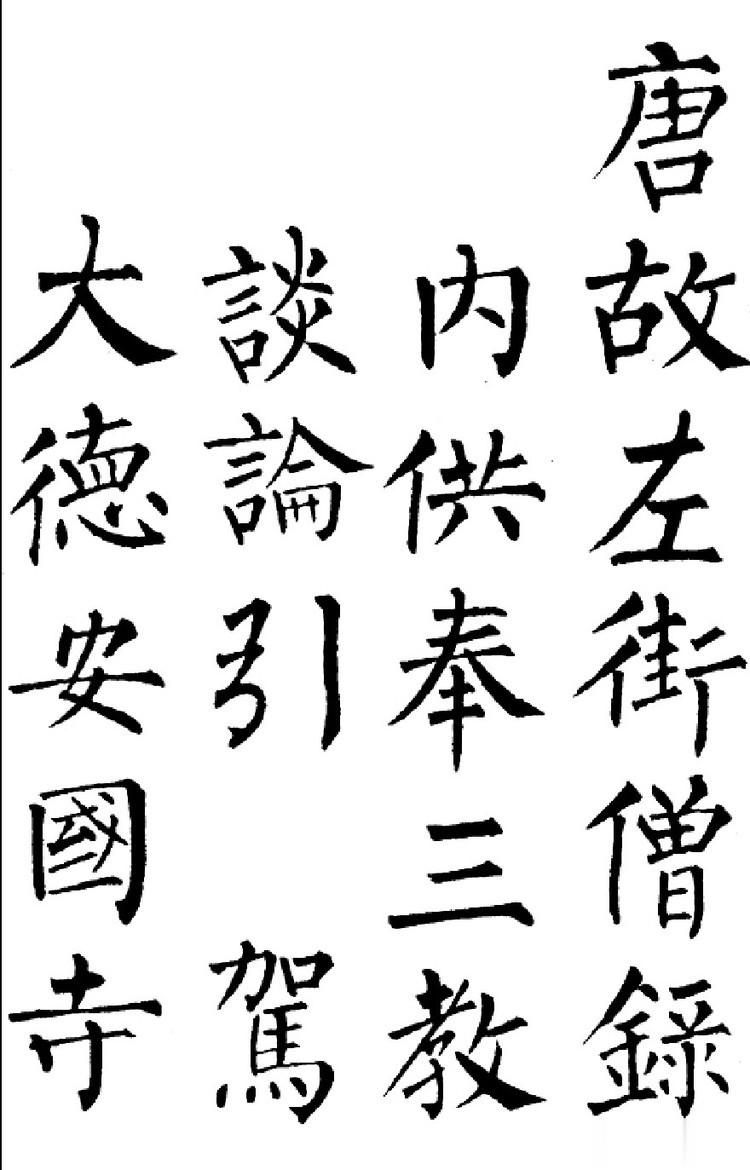 唐故左街僧錄
内供奉三教
談論引　駕
大德安國寺